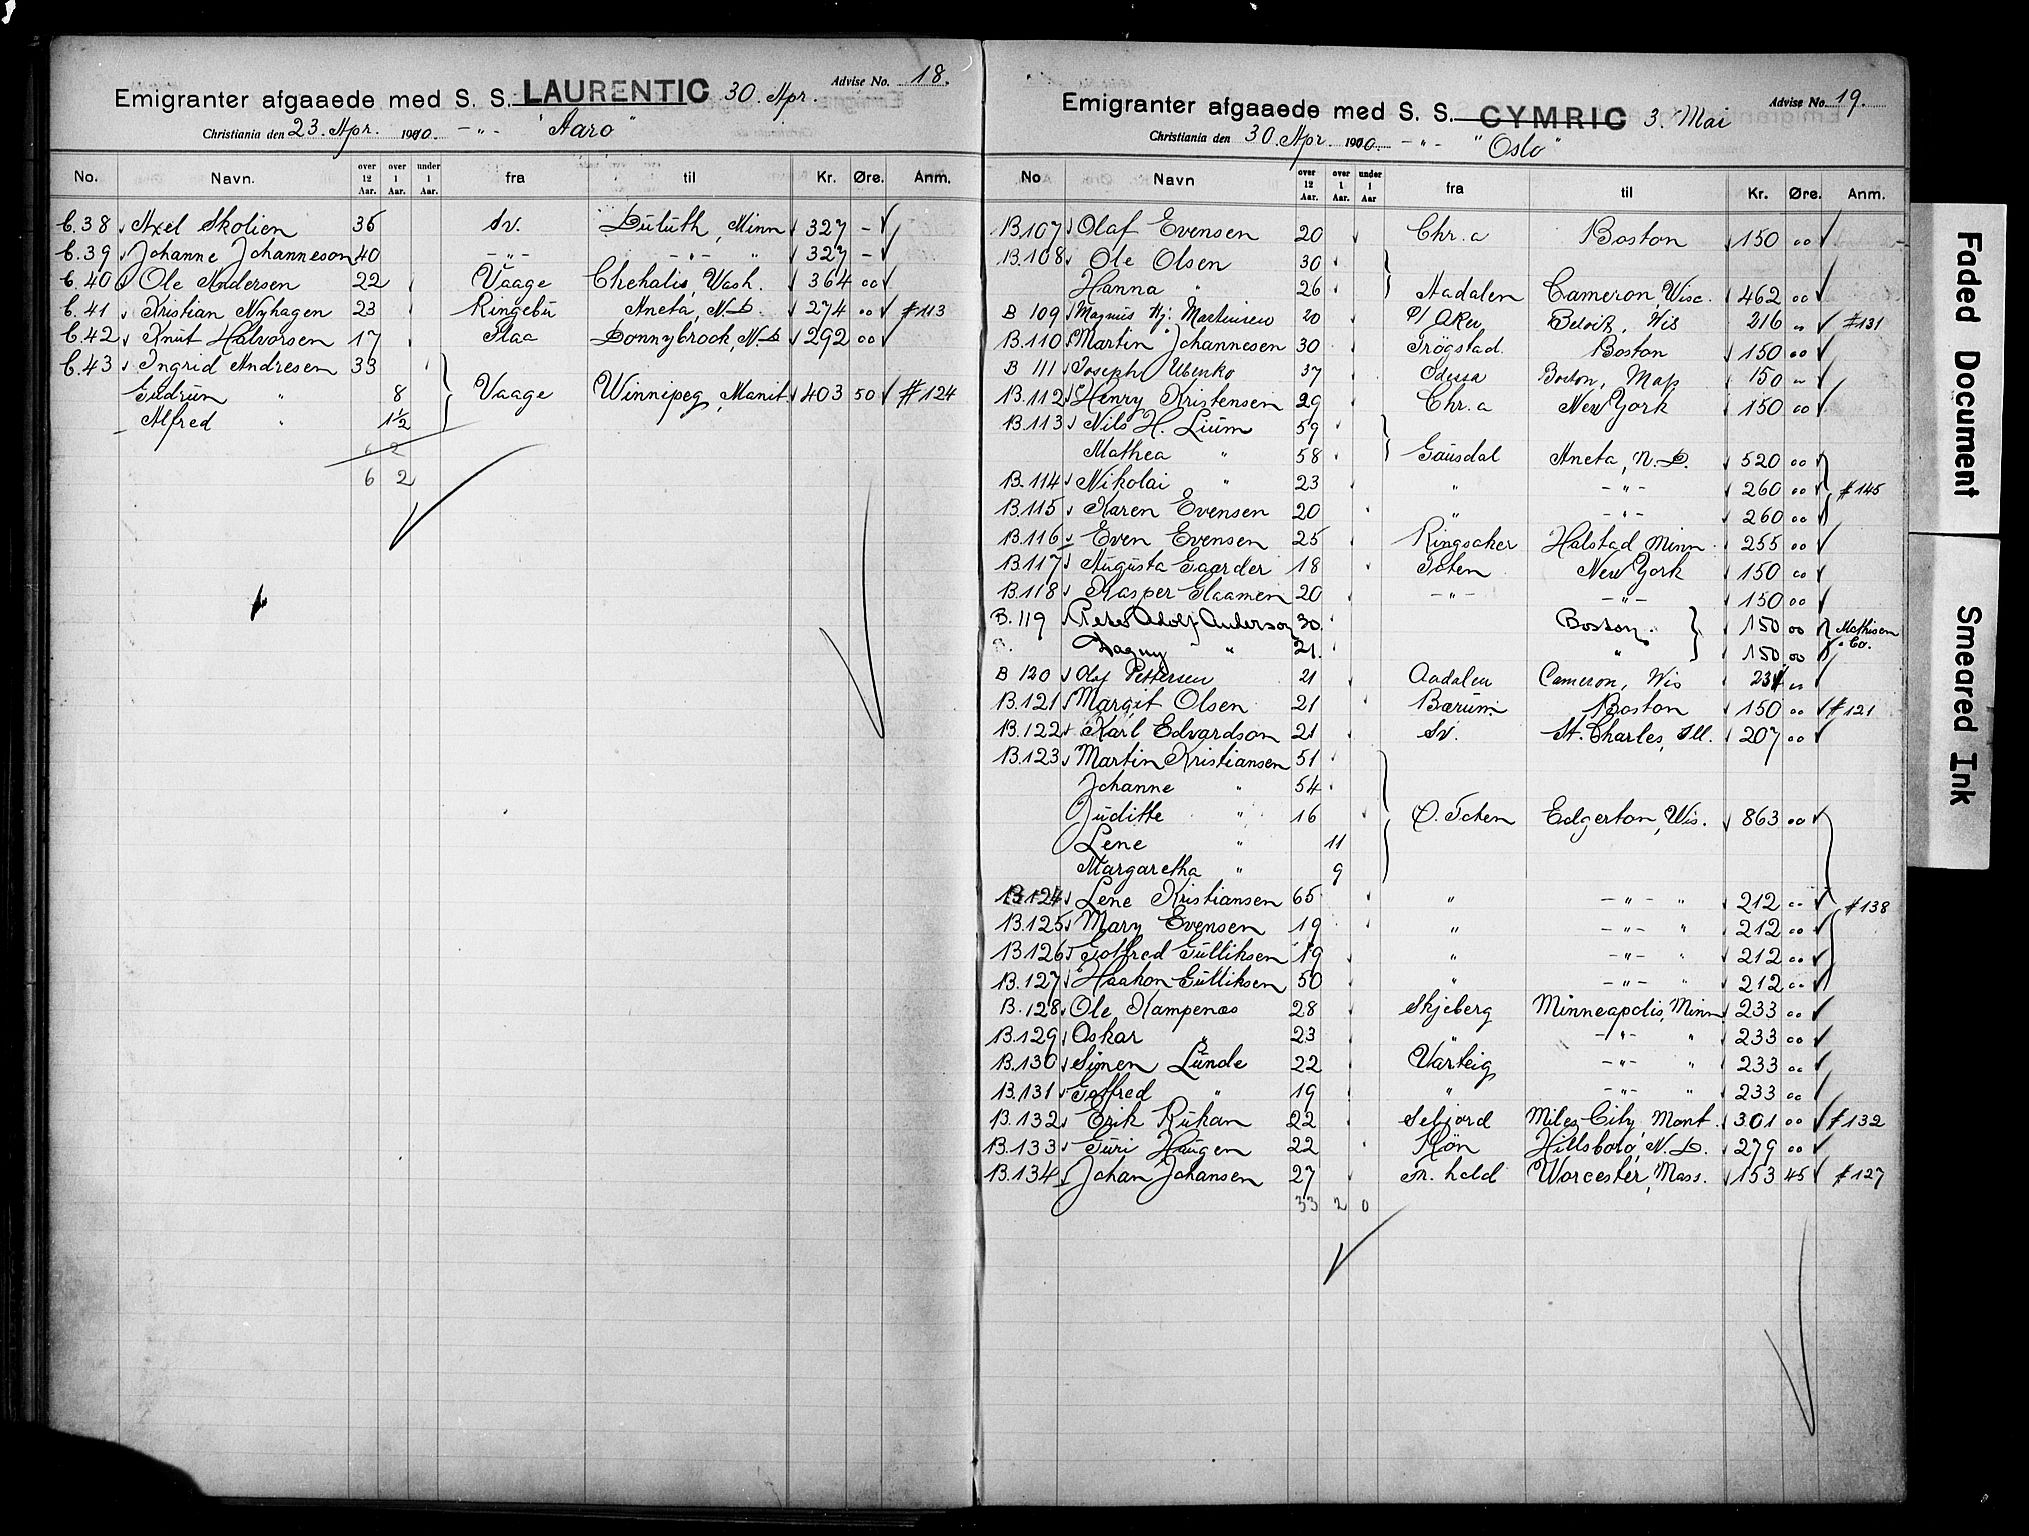 Advise No. 18.
Emigranter afgaaede med S. S. LAURENTIC 30. Apr.
Christiania den 23. Apr. 1910 -"- "Aaro"
No. Navn. over 12 Aar. over 1 Aar. under 1 Aar. fra til Kr. Øre. Anm.
C.38 Axel Skolien 36 Sv. Duluth, Minn 327 -
C.39 Johanne Johanneson 40 -"- -"- " 327 -
C.40 Ole Andersen 22 Vaage Chehalis, Wash. 364 00
C.41 Kristian Nyhagen 23 Ringebu Aneta, N.D. 274 00 #113
C.42 Knut Halvorsen 17 Donnybrook, N.D 292 00
C.43 Ingrid Andresen 33
Gudrun " 8 Vaage Winnipeg, Manit. 403 50 #124
Alfred " 1½
6 2
6 2
Advise No. 19.
Emigranter afgaaede med S. S. CYMRIC 3. Mai
Christiania den 30. Apr. 1910. -"- "Oslo"
No Navn over 12 Aar. over 1 Aar. under 1 Aar fra til Kr. Øre. Anm.
B.107 Olaf Evensen 20 Chr.a Boston 150 00
B.108 Ole Olsen 30
Hanna " 26 Aadalen Cameron, Wisc. 462 00
B 109 Magnus Kj. Martinsen 20 Aker Beloit, Wis 216 " #131
B.110 Martin Johannesen 30 Trögstad. Boston 150 00
B 111 Joseph Ubenko 37 Odessa Boston, Mass 150 "
B.112 Henry Kristensen 29 Chr.a New York 150 00
B.113 Nils H. Lium 59
Mathea " 58 Gausdal Aneta, N.D. 520 00
B.114 Nikolai " 23 " -"- 260 00 #145
B.115 Karen Evensen 20 " -"- 260 00
B.116 Even Evensen 25 Ringsaker Halstad Minn. 255 00
B.117 Augusta Gaarder 18 Toten New York 150 00
B.118 Kasper Glaamen 20 -"- -"- 150 00
B.119 Adolf Anderson 30. Boston. 150 00 Mathisen
Dagny " 21. " 150 00 & Co.
B 120 Olaf Pettersen 21 Aadalen Cameron, Wis 231 "
B.121 Margit Olsen 21 Bærum. Boston 150 00 #121
B.122 Karl Edvardson 21 Sv. St. Charles, Ill. 207 00
B.123 Martin Kristiansen 51
Johanne " 54
Juditte " 16 Ö. Toten Edgerton, Wis. 863 00
Lene " 11
Margaretha " 9
B.124 Lene Kristiansen 65 " -"- " 212 00 #138
B.125 Mary Evensen 19 " -"- " 212 00
B.126 Gotfred Gulliksen 19 " -"- " 212 00
B.127 Haakon Gulliksen 50 " -"- " 212 00
B.128 Ole Kampenæs 28 Skjeberg Minneapolis, Minn 233 00
B.129 Oskar " 23 " -"- " 233 00
B.130 Simen Lunde 22 Varteig -"- " 233 00
B.131 Gotfred " 19 " -"- " 233 00
B.132 Erik Rukan 22 Seljord Miles City, Mont. 301 00 #132
B.133 Guri Haugen 22 Røn Hillsboro, N.D. 279 00
B.134 Johan Johansen 27 Fr. hald Worcester, Mass. 153 45 #127
33 2 0
Faded Document
Smeared Ink